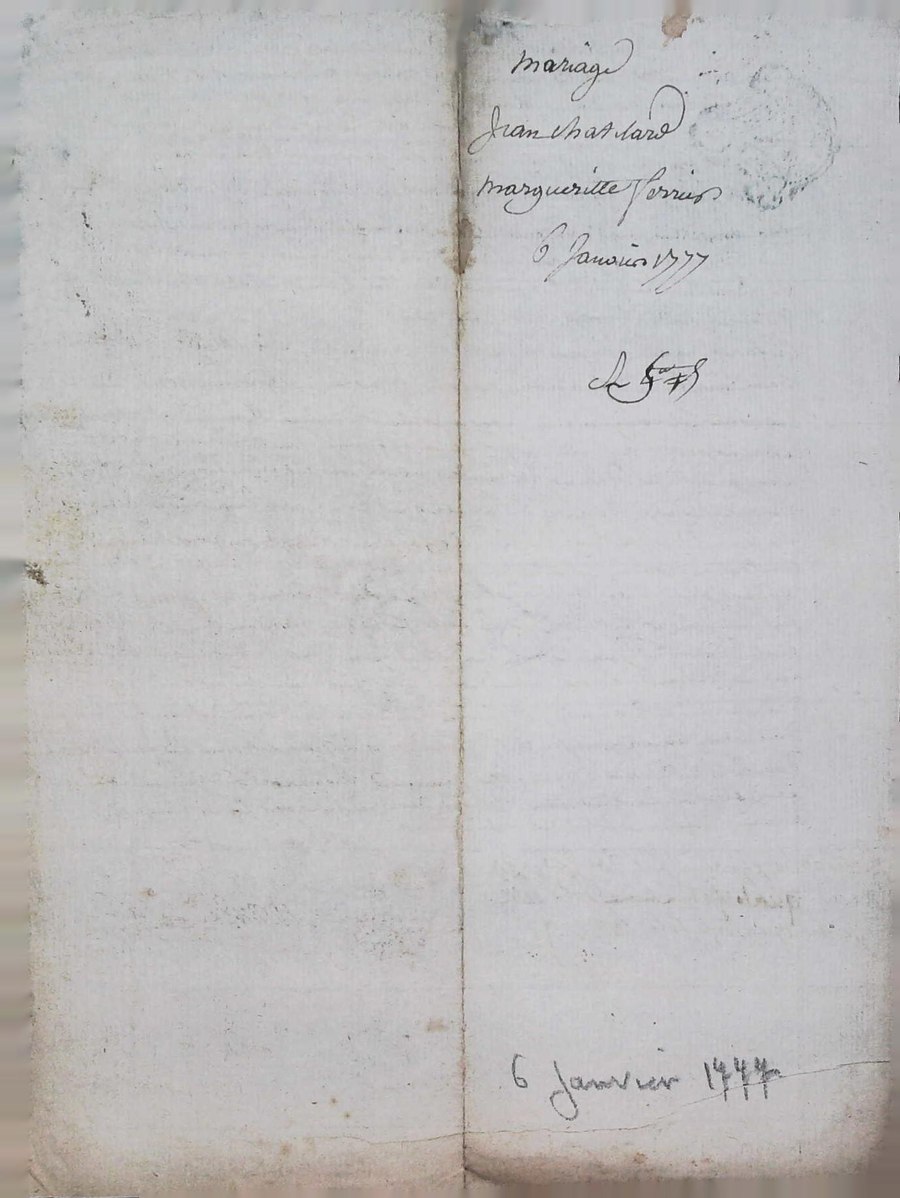 mariage
Jean Chatelard
margueritte Perrier
6 Janvier 1777
6 Janvier 1777